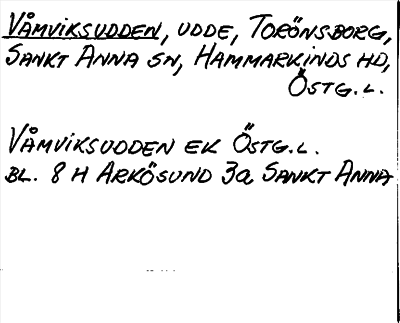 VÅMVIKSUDDEN, UDDE, TORÖNSBORG,
SANKT ANNA SN, HAMMARKINDS HD,
ÖSTG.L.
VÅMVIKSUDDEN EK ÖSTG.L.
BL. 8 H ARKÖSUND 3a SANKT ANNA